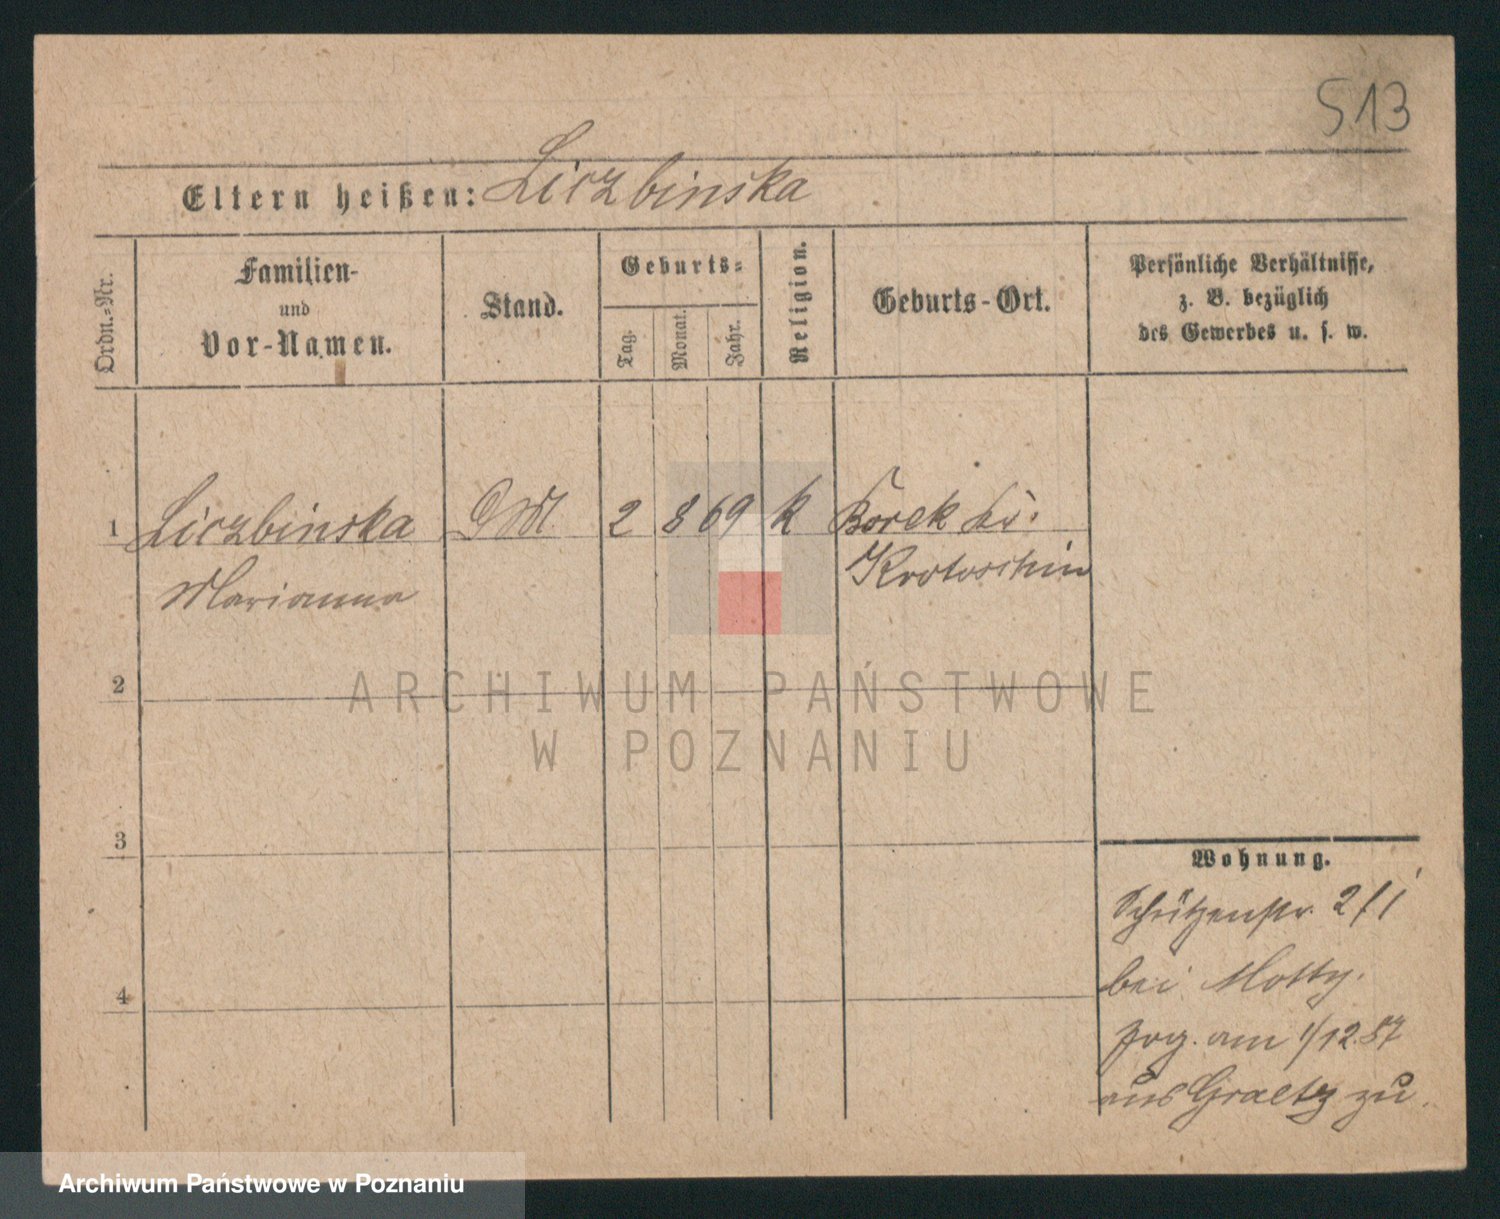 513
Eltern heißen: Liczbinska
Ordn.-Nr.
Familien-
und
Vor-Namen.
Stand.
Geburts-
Tag.
Monat.
Jahr.
Religion.
Geburts-Ort.
Persönliche Verhältnisse,
z. B. bezüglich
des Gewerbes u. s. w.
1 Liczbinska DM 2 8 69 k Borek Kr.
Marianna Krotoschin
2
ARCHIWUM PAŃSTWOWE
W POZNANIU
3
Wohnung.
Schützenstr. 2/I
bei Motty.
zog. am 1/12.87
4
aus Graetz zu.
Archiwum Państwowe w Poznaniu